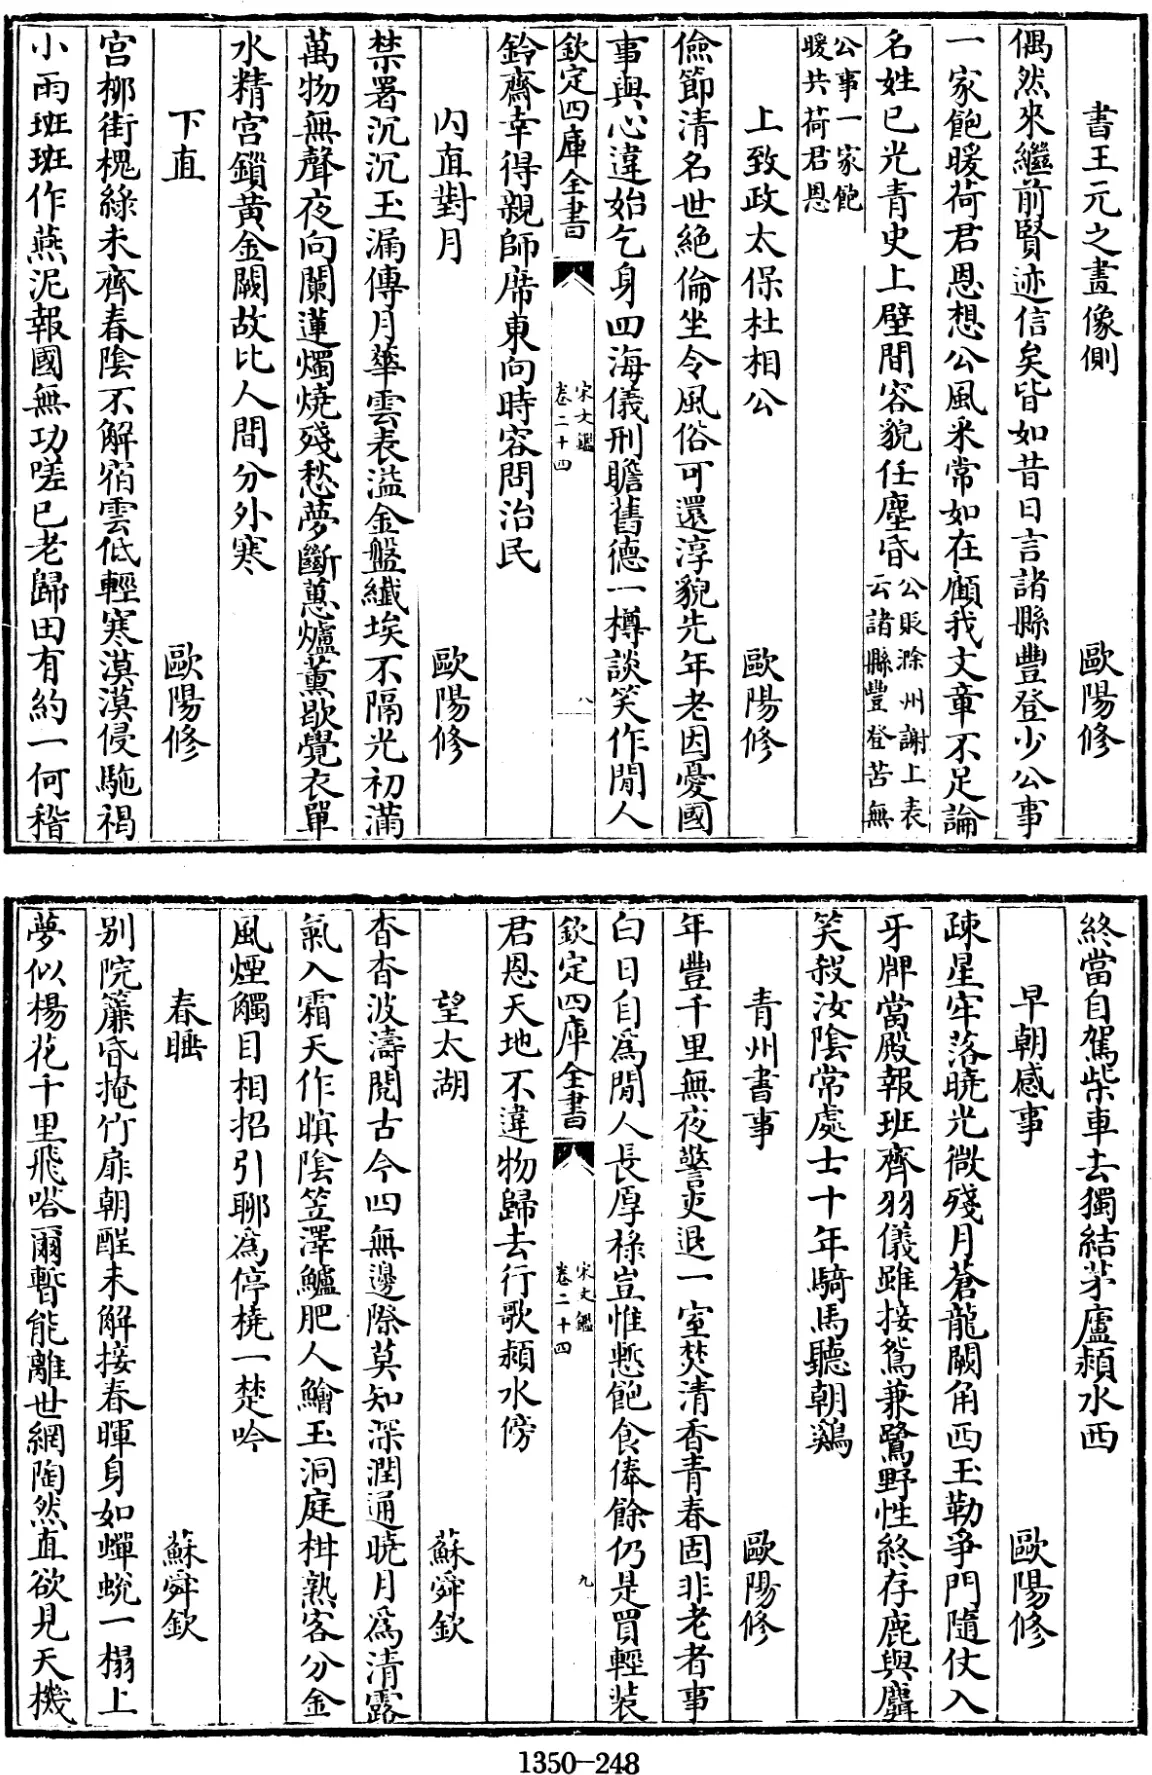 書王元之畫像側 歐陽修
偶然來繼前賢迹信矣皆如昔日言諸縣豐登少公事
一家飽暖荷君恩想公風采常如在顧我文章不足論
名姓已光青史上壁間容貌任塵昏公貶滁州謝上表
云諸縣豐登苦無
公事一家飽
暖共荷君恩
上致政太保杜相公 歐陽修
儉節清名世絶倫坐令風俗可還淳貌先年老因憂國
事與心違始乞身四海儀刑瞻舊德一樽談笑作閒人
欽定四庫全書 宋文鑑
卷二十四 八
鈴齋幸得親師席東向時容問治民
内直對月 歐陽修
禁署沉沉玉漏傳月華雲表溢金盤纎埃不隔光初滿
萬物無聲夜向闌蓮燭燒殘愁夢斷蕙爐薰歇覺衣單
水精宮鎖黄金闕故比人間分外寒
下直 歐陽修
宫柳街槐綠未齊春陰不解宿雲低輕寒漠漠侵駞褐
小雨班班作燕泥報國無功嗟已老歸田有約一何稽
終當自駕柴車去獨結茅廬潁水西
早朝感事 歐陽修
疎星牢落曉光微殘月蒼龍闕角西玉勒爭門隨仗入
牙牌當殿報班齊羽儀雖接鴛兼鷺野性終存鹿與麏
笑殺汝陰常處士十年騎馬聽朝鷄
青州書事 歐陽修
年豐千里無夜警吏退一室焚清香青春固非老者事
白日自爲閒人長厚祿豈惟慙飽食俸餘仍是買輕装
欽定四庫全書 宋文鑑
卷二十四 九
君恩天地不違物歸去行歌潁水傍
望太湖 蘇舜欽
杳杳波濤閱古今四無邊際莫知深潤通曉月爲清露
氣入霜天作暝陰笠澤鱸肥人鱠玉洞庭柑熟客分金
風煙觸目相招引聊爲停橈一楚吟
春睡 蘇舜欽
别院簾昏掩竹扉朝酲未解接春暉身如蟬蛻一榻上
夢似楊花千里飛嗒爾暫能離世網陶然直欲見天機
1350-248